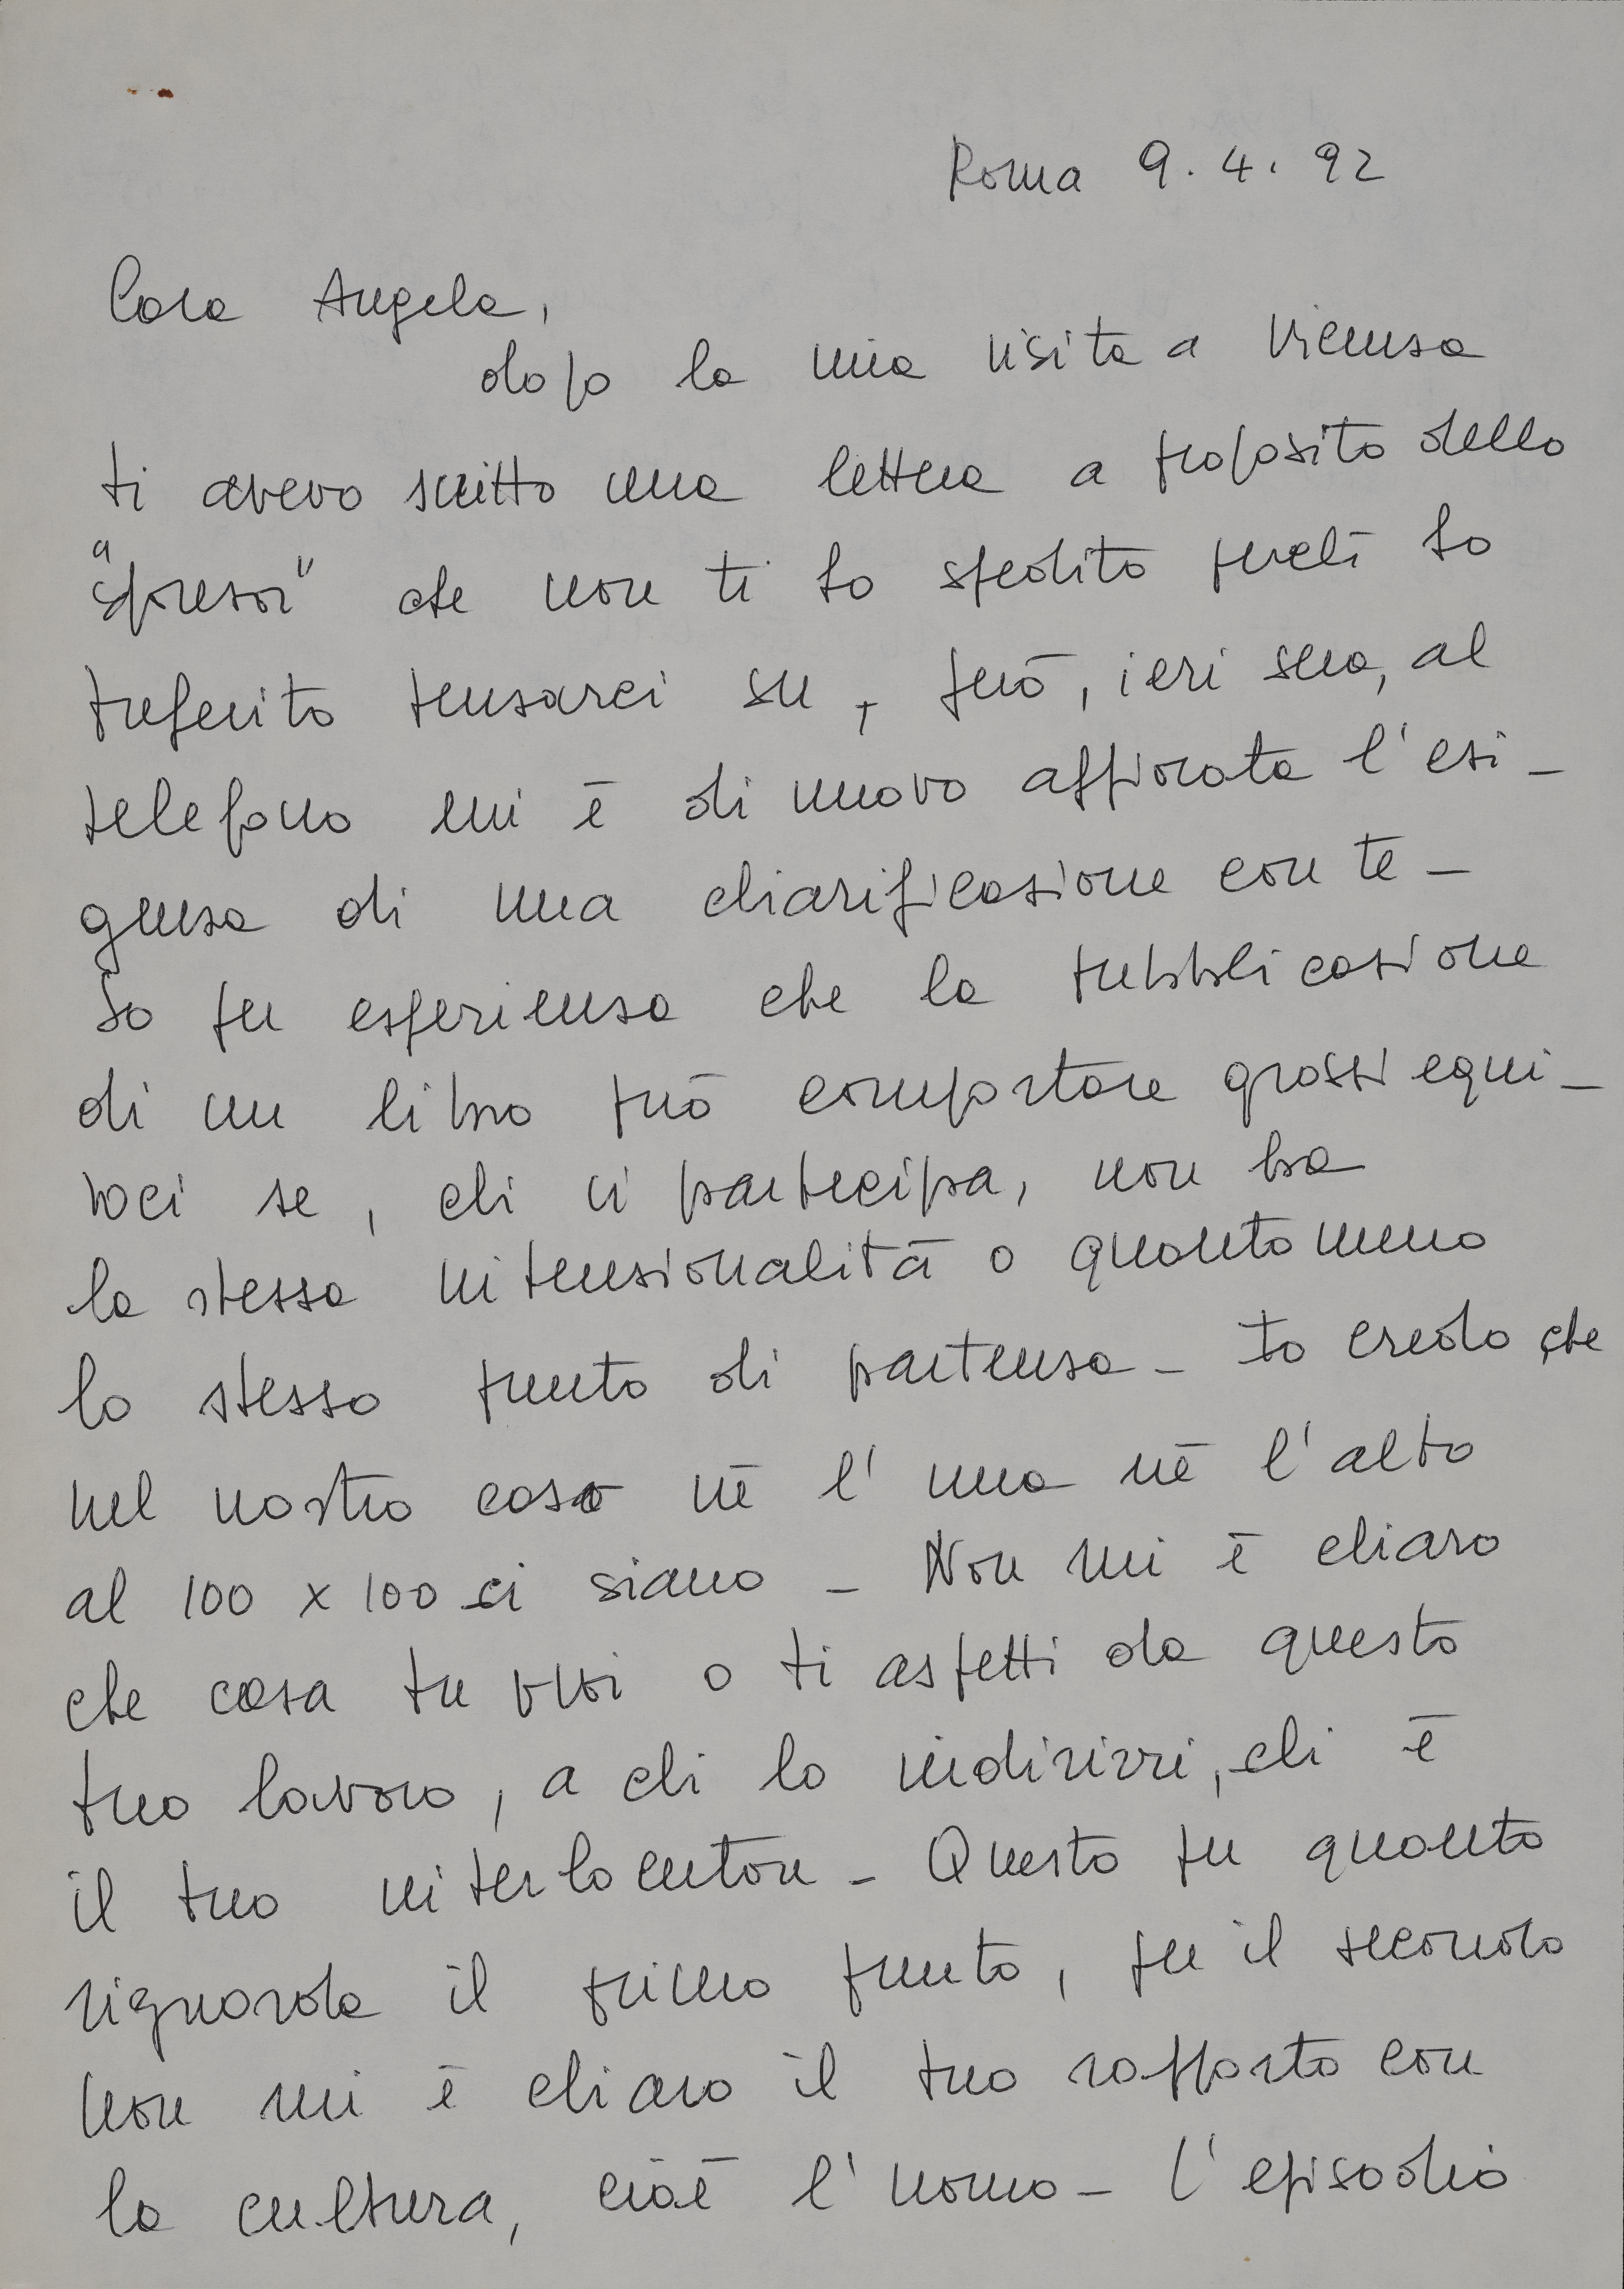 Roma 9.4.92
Cara Angela,
dopo la mia visita a Vicenza
ti avevo scritto una lettera a proposito dello
che non ti ho spedito perché ho
preferito pensarci su, però, ieri sera, al
telefono mi è di nuovo affiorata l'esi-
genza di una chiarificazione con te -
So per esperienza che la pubblicazione
di un libro può comportare grossi equi-
voci se, chi ci partecipa, non ha
la stessa intenzionalità o quanto meno
lo stesso punto di partenza - Io credo che
nel nostro caso nè l'una nè l'altro
al 100 x 100 ci siano - Non mi è chiaro
che cosa tu vuoi o ti aspetti da questo
tuo lavoro, a chi lo indirizzi, chi è
il tuo interlocutore - Questo per quanto
riguarda il primo punto, per il secondo
non mi è chiaro il tuo rapporto con
la cultura, cioè l'uomo - l'episodio